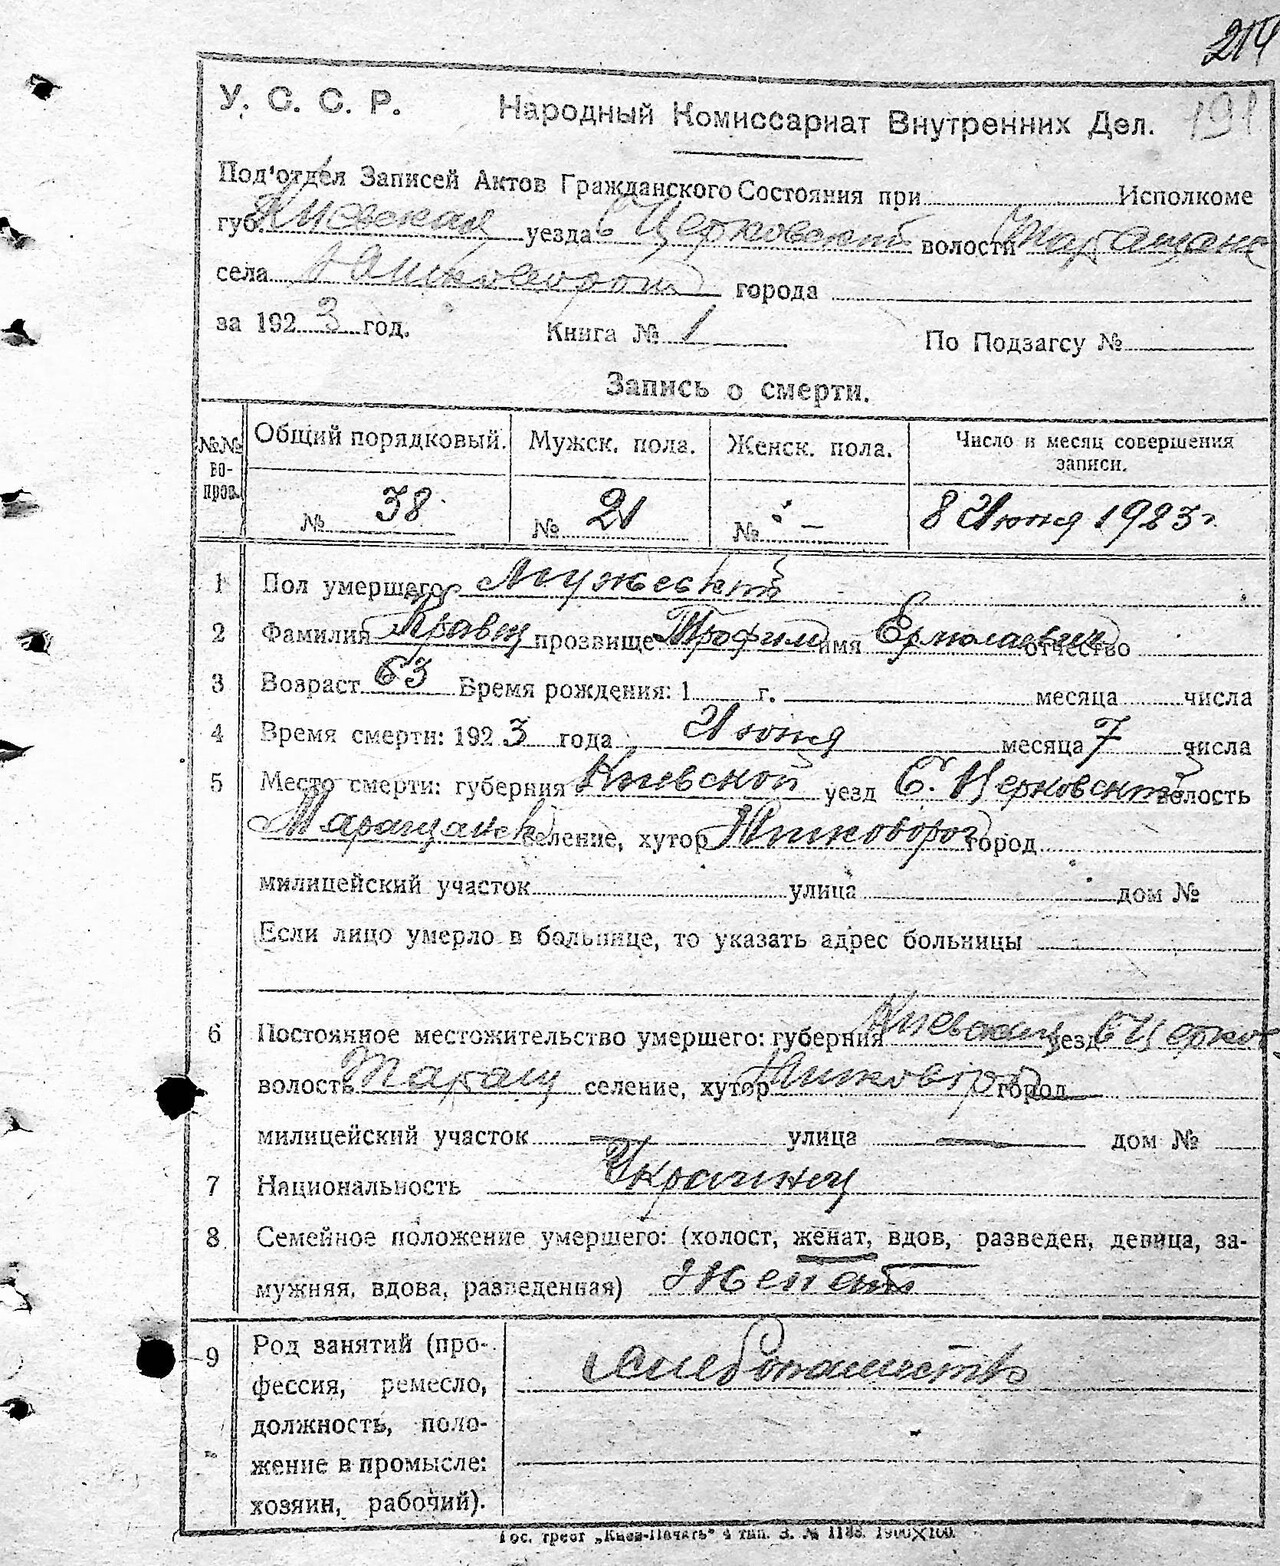 214
У. С. С. Р. Народный Комиссариат Внутренних Дел. 191
Под'отдел Записей Актов Гражданского Состояния при Исполкоме
губ. Киевская уезда Б Церковский волости Таращанс
села Юшковорог города
за 1923 год. Книга № 1 По Подзагсу №
Запись о смерти.
№№ вопров. Общий порядковый. Мужск. пола. Женск. пола. Число и месяц совершения записи.
№ 38 № 21 № - 8 Июня 1923 г
1 Пол умершего Мужеский
2 Фамилия Кравец прозвище Трофим имя Ермолаевич отчество
3 Возраст 63 Время рождения: 1 г. месяца числа
4 Время смерти: 1923 года Июня месяца 7 числа
5 Место смерти: губерния Киевской уезд Б. Церковский волость
Таращанск селение, хутор Юшковорог город
милицейский участок улица дом №
Если лицо умерло в больнице, то указать адрес больницы
6 Постоянное местожительство умершего: губерния Киевская уезд Б Церков
волость Таращ селение, хутор Юшковрог город
милицейский участок — улица — дом №
7 Национальность Украинец
8 Семейное положение умершего: (холост, женат, вдов, разведен, девица, за-
мужняя, вдова, разведенная) Женат
9 Род занятий (про-
фессия, ремесло, хлебопашество
должность, поло-
жение в промысле:
хозяин, рабочий).
Гос. трест „Киев-Печать" 4 тип. З. № 1188. 1900×100.